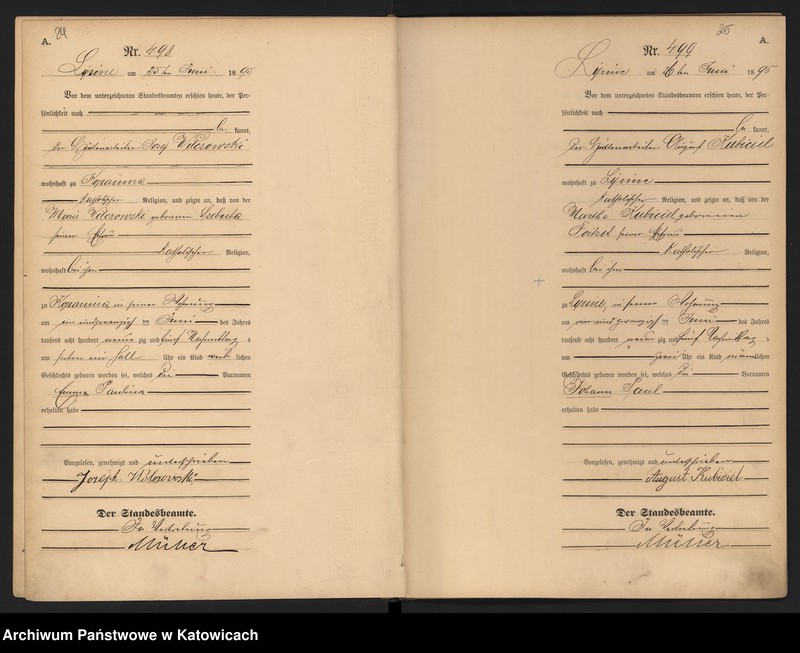 24
A.
Nr. 498
am 25ten Juni 1895
Vor dem unterzeichneten Standesbeamten erschien heute, der Per-
sönlichkeit nach
be kannt,
der Hüttenarbeiter Josef
wohnhaft zu Kopanina
katholischer Religion, und zeigte an, daß von der
Marie geborenen
seiner Ehefrau
katholischer Religion,
wohnhaft bei ihm
zu Kopanina in seiner Wohnung
am ein und zwanzigsten Juni des Jahres
tausend acht hundert neun zig und fünf Nachmittags
um sieben ein halb Uhr ein Kind weib lichen
Geschlechts geboren worden sei, welches die Vornamen
Emma Paulina
erhalten habe
Vorgelesen, genehmigt und unterschrieben
Joseph
Der Standesbeamte.
In Vertretung
Müller
25
A.
Nr. 499
am 26ten Juni 1895
Vor dem unterzeichneten Standesbeamten erschien heute, der Per-
sönlichkeit nach
be kannt,
der Hüttenarbeiter August Kubiciel
wohnhaft zu
katholischer Religion, und zeigte an, daß von der
Martha Kubiciel geborenen
seiner Ehefrau
katholischer Religion,
wohnhaft bei ihm
zu in seiner Wohnung
am vier und zwanzigsten Juni des Jahres
tausend acht hundert neun zig und fünf Nachmittags
um zwei Uhr ein Kind männlichen
Geschlechts geboren worden sei, welches die Vornamen
Johann Paul
erhalten habe
Vorgelesen, genehmigt und unterschrieben
August Kubiciel
Der Standesbeamte.
In Vertretung
Müller
Archiwum Państwowe w Katowicach